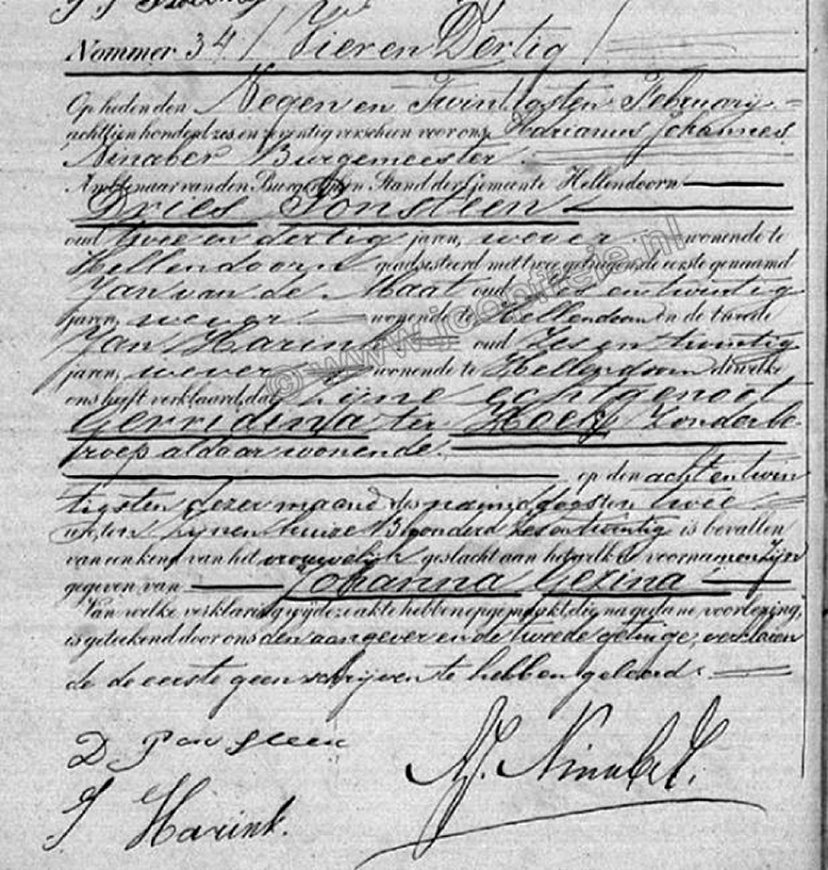 Nommer 34 / Vier en Dertig /
Op heden den Negen en Twintigsten February
achttien honderd zes en zeventig verscheen voor ons, Adrianus Johannes
Ninaber Burgemeester
Ambtenaar van den Burgerlijken Stand der Gemeente Hellendoorn
Dries Ponsteen
oud twee en dertig jaren, wever wonende te
Hellendoorn geadsisteerd met twee getuigen, de eerste genaamd
Jan van de Maat oud en twintig
jaren, wever wonende te Hellendoorn en de tweede
Jan Harink oud Zes en twintig
jaren, wever wonende te Hellendoorn dewelke
ons heeft verklaard, dat Zijne echtgenoot
Gerridina ter Hoek Zonder be
roep aldaar wonende
op den acht en twin
tigsten dezer maand des namiddags ten twee
ure, ten Zijnen huize B honderd Zes en twintig is bevallen
van een kind van het vrouwelijk geslacht aan hetwelk de voornamen zijn
gegeven van Johanna Gezina
Van welke verklaring wij deze akte hebben opgemaakt, die na gedane voorlezing,
is geteekend door ons den aangever en de tweede getuige, verklaren
de de eerste geen schrijven te hebben geleerd.
D Ponsteen
A.J. Ninaber.
J Harink.
© www.jgoolfzeje.nl